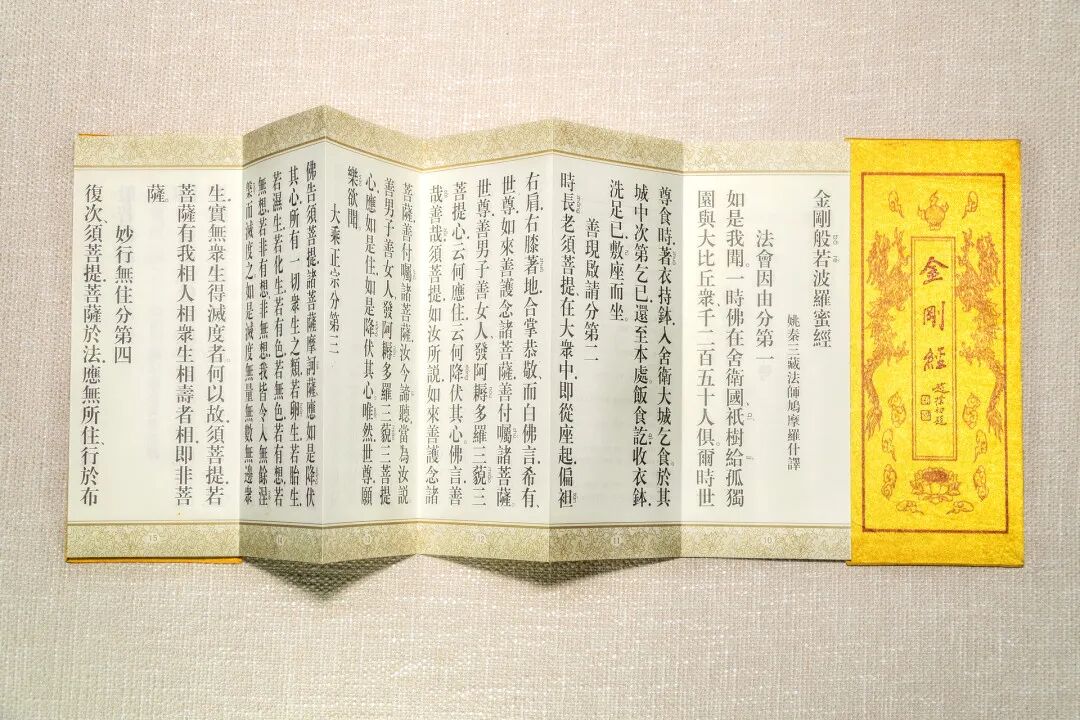 金剛經
趙樸初題
金剛般若波羅蜜經
姚秦三藏法師鳩摩羅什譯
法會因由分第一
如是我聞。一時佛在舍衛國、祇樹給孤獨
園與大比丘衆千二百五十人俱。爾時世
10
尊食時、著衣持鉢、入舍衛大城乞食。於其
城中、次第乞已、還至本處。飯食訖、收衣鉢、
洗足已、敷座而坐。
善現啟請分第二
時長老須菩提、在大衆中、即從座起、偏袒
11
右肩、右膝著地、合掌恭敬、而白佛言、希有、
世尊、如來善護念諸菩薩、善付囑諸菩薩。
世尊、善男子善女人、發阿耨多羅三藐三
菩提心、云何應住、云何降伏其心。佛言、善
哉善哉、須菩提、如汝所說、如來善護念諸
12
菩薩、善付囑諸菩薩、汝今諦聽、當為汝說。
善男子善女人、發阿耨多羅三藐三菩提
心、應如是住、如是降伏其心。唯然、世尊、願
樂欲聞。
大乘正宗分第三
13
佛告須菩提、諸菩薩摩訶薩、應如是降伏
其心、所有一切衆生之類、若卵生、若胎生、
若濕生、若化生、若有色、若無色、若有想、若
無想、若非有想非無想、我皆令入無餘涅
槃而滅度之、如是滅度無量無數無邊衆
14
生、實無衆生得滅度者。何以故、須菩提、若
菩薩有我相人相衆生相壽者相、即非菩
薩。
妙行無住分第四
復次、須菩提、菩薩於法、應無所住、行於布
15